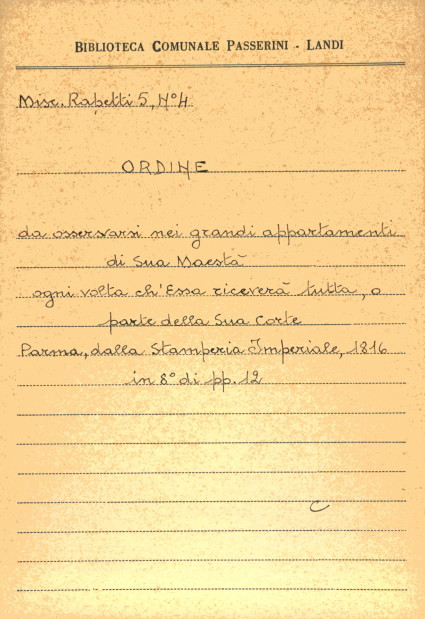 BIBLIOTECA COMUNALE PASSERINI - LANDI
Misc. Rapetti 5, N° 4
ORDINE
da osservarsi nei grandi appartamenti
di Sua Maestà
ogni volta ch'Essa riceverà tutta, o
parte della Sua Corte
Parma, dalla Stamperia Imperiale, 1816
in 8° di pp. 12
C